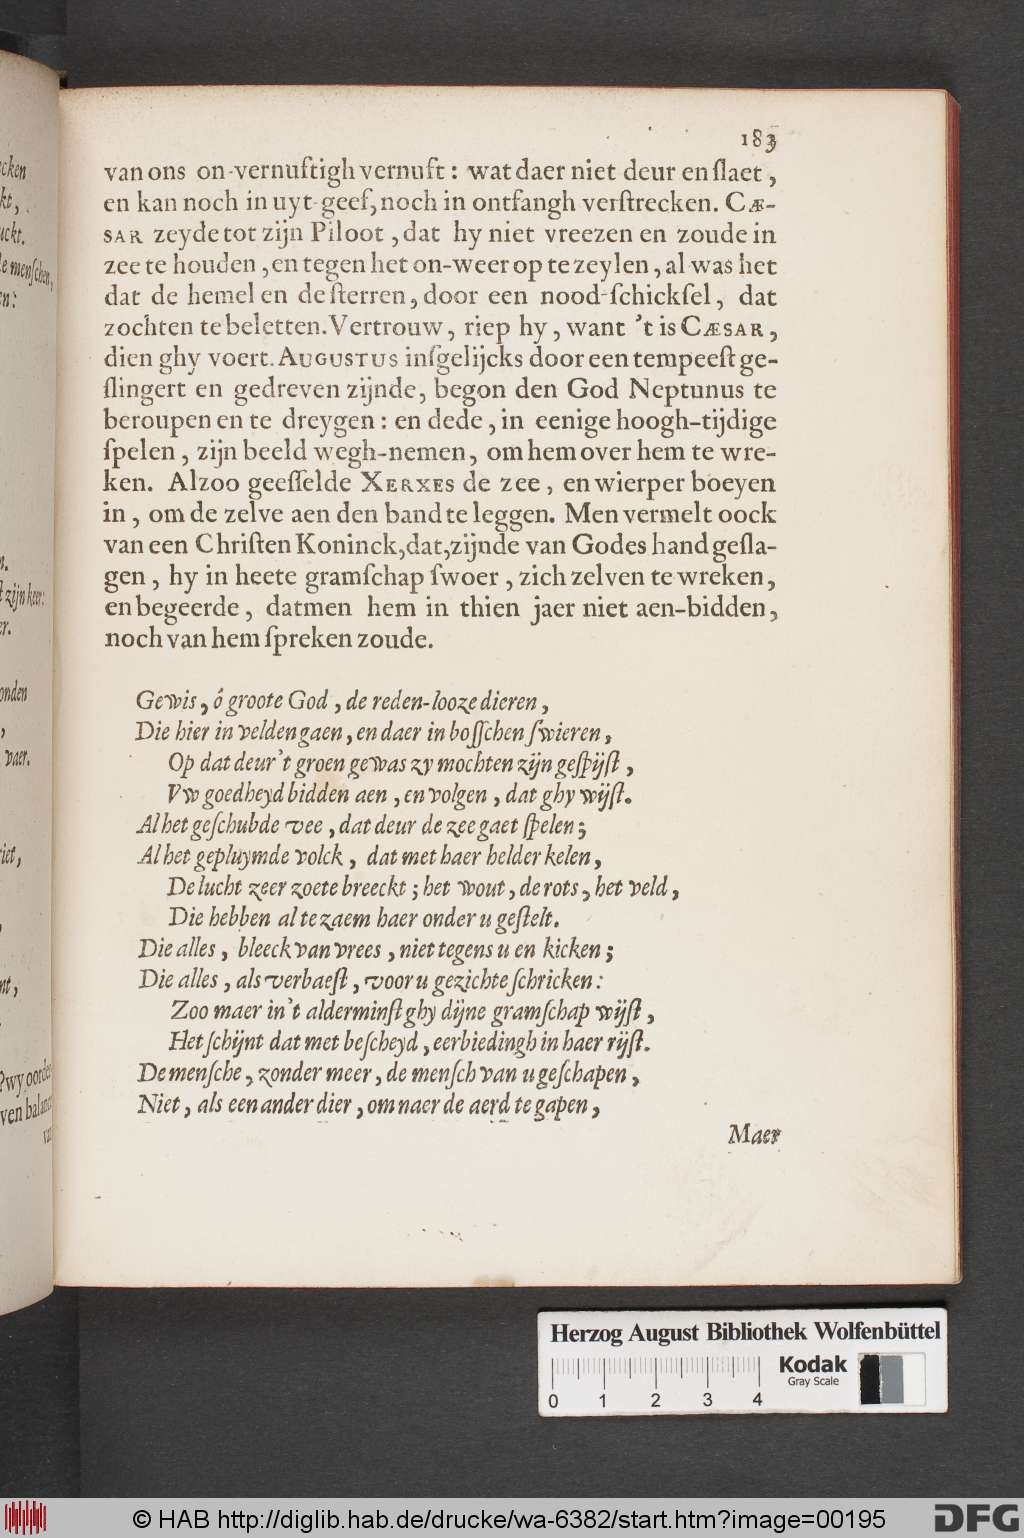 183
van ons on-vernuſtigh vernuft : wat daer niet deur en ſlaet,
en kan noch in uyt-geef, noch in ontfangh verſtrecken. CÆ-
SAR zeyde tot zijn Piloot, dat hy niet vreezen en zoude in
zee te houden, en tegen het on-weer op te zeylen, al was het
dat de hemel en de ſterren, door een nood-ſchickſel, dat
zochten te beletten. Vertrouw, riep hy, want 't is CÆSAR,
dien ghy voert. AUGUSTUS inſgelijcks door een tempeeſt ge-
ſlingert en gedreven zijnde, begon den God Neptunus te
beroupen en te dreygen : en dede, in eenige hoogh-tijdige
ſpelen, zijn beeld wegh-nemen, om hem over hem te wre-
ken. Alzoo geeſſelde XERXES de zee, en wierper boeyen
in, om de zelve aen den band te leggen. Men vermelt oock
van een Chriſten Koninck, dat, zijnde van Godes hand geſla-
gen, hy in heete gramſchap ſwoer, zich zelven te wreken,
en begeerde, datmen hem in thien jaer niet aen-bidden,
noch van hem ſpreken zoude.
Gewis, ô groote God, de reden-looze dieren,
Die hier in velden gaen, en daer in boſſchen ſwieren,
Op dat deur 't groen gewas zy mochten zijn geſpijſt,
Vw goedheyd bidden aen, en volgen, dat ghy wijſt.
Al het geſchubde vee, dat deur de zee gaet ſpelen;
Al het gepluymde volck, dat met haer helder kelen,
De lucht zeer zoete breeckt; het wout, de rots, het veld,
Die hebben al te zaem haer onder u geſtelt.
Die alles, bleeck van vrees, niet tegens u en kicken;
Die alles, als verbaeſt, voor u gezichte ſchricken:
Zoo maer in 't alderminſt ghy dijne gramſchap wijſt,
Het ſchijnt dat met beſcheyd, eerbiedingh in haer rijſt.
De menſche, zonder meer, de menſch van u geſchapen,
Niet, als een ander dier, om naer de aerd te gapen,
Maer
Herzog August Bibliothek Wolfenbüttel
Kodak
Gray Scale
0 1 2 3 4
© HAB http://diglib.hab.de/drucke/wa-6382/start.htm?image=00195
DFG